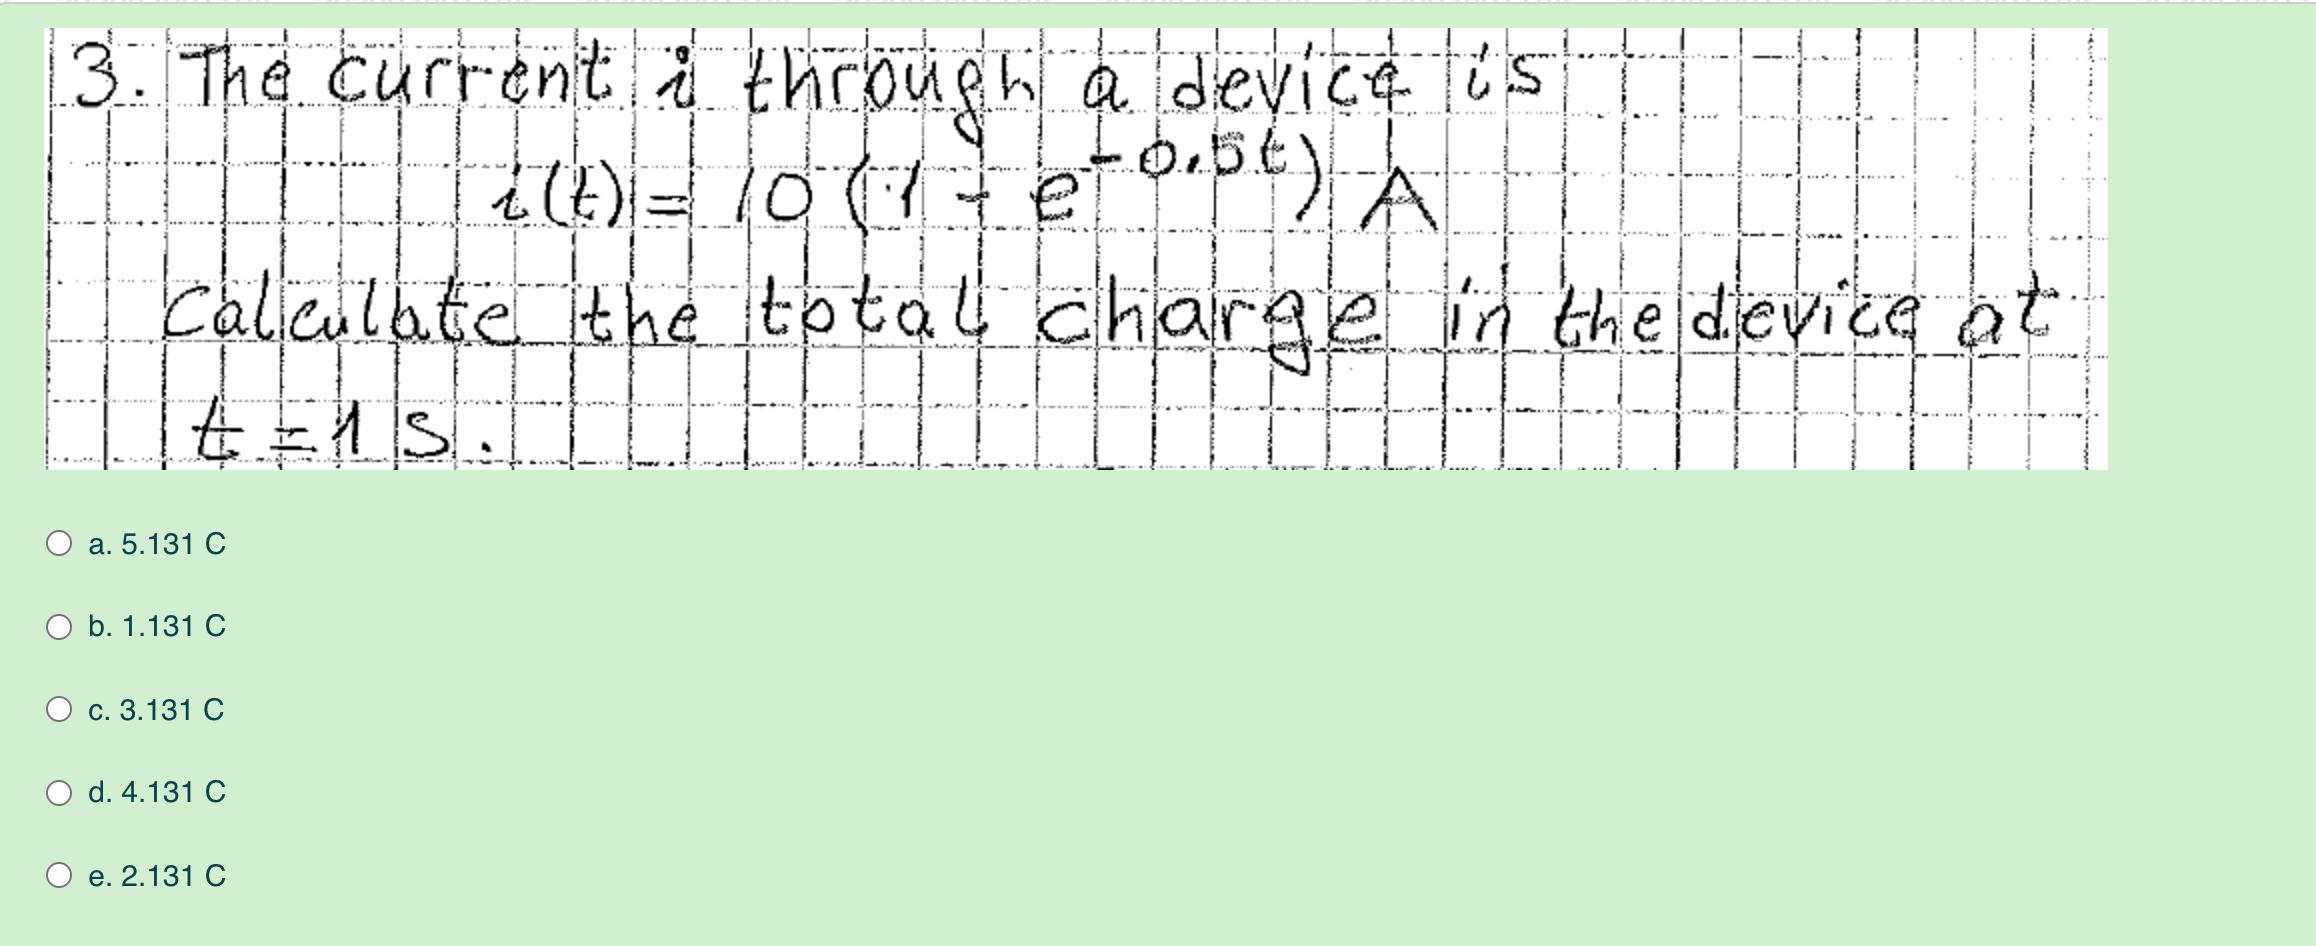 3. The current i through a device is
i(t) = 10 (1 - e^-0.5t) A
Calculate the total charge in the device at
t = 1 s.
a. 5.131 C
b. 1.131 C
c. 3.131 C
d. 4.131 C
e. 2.131 C